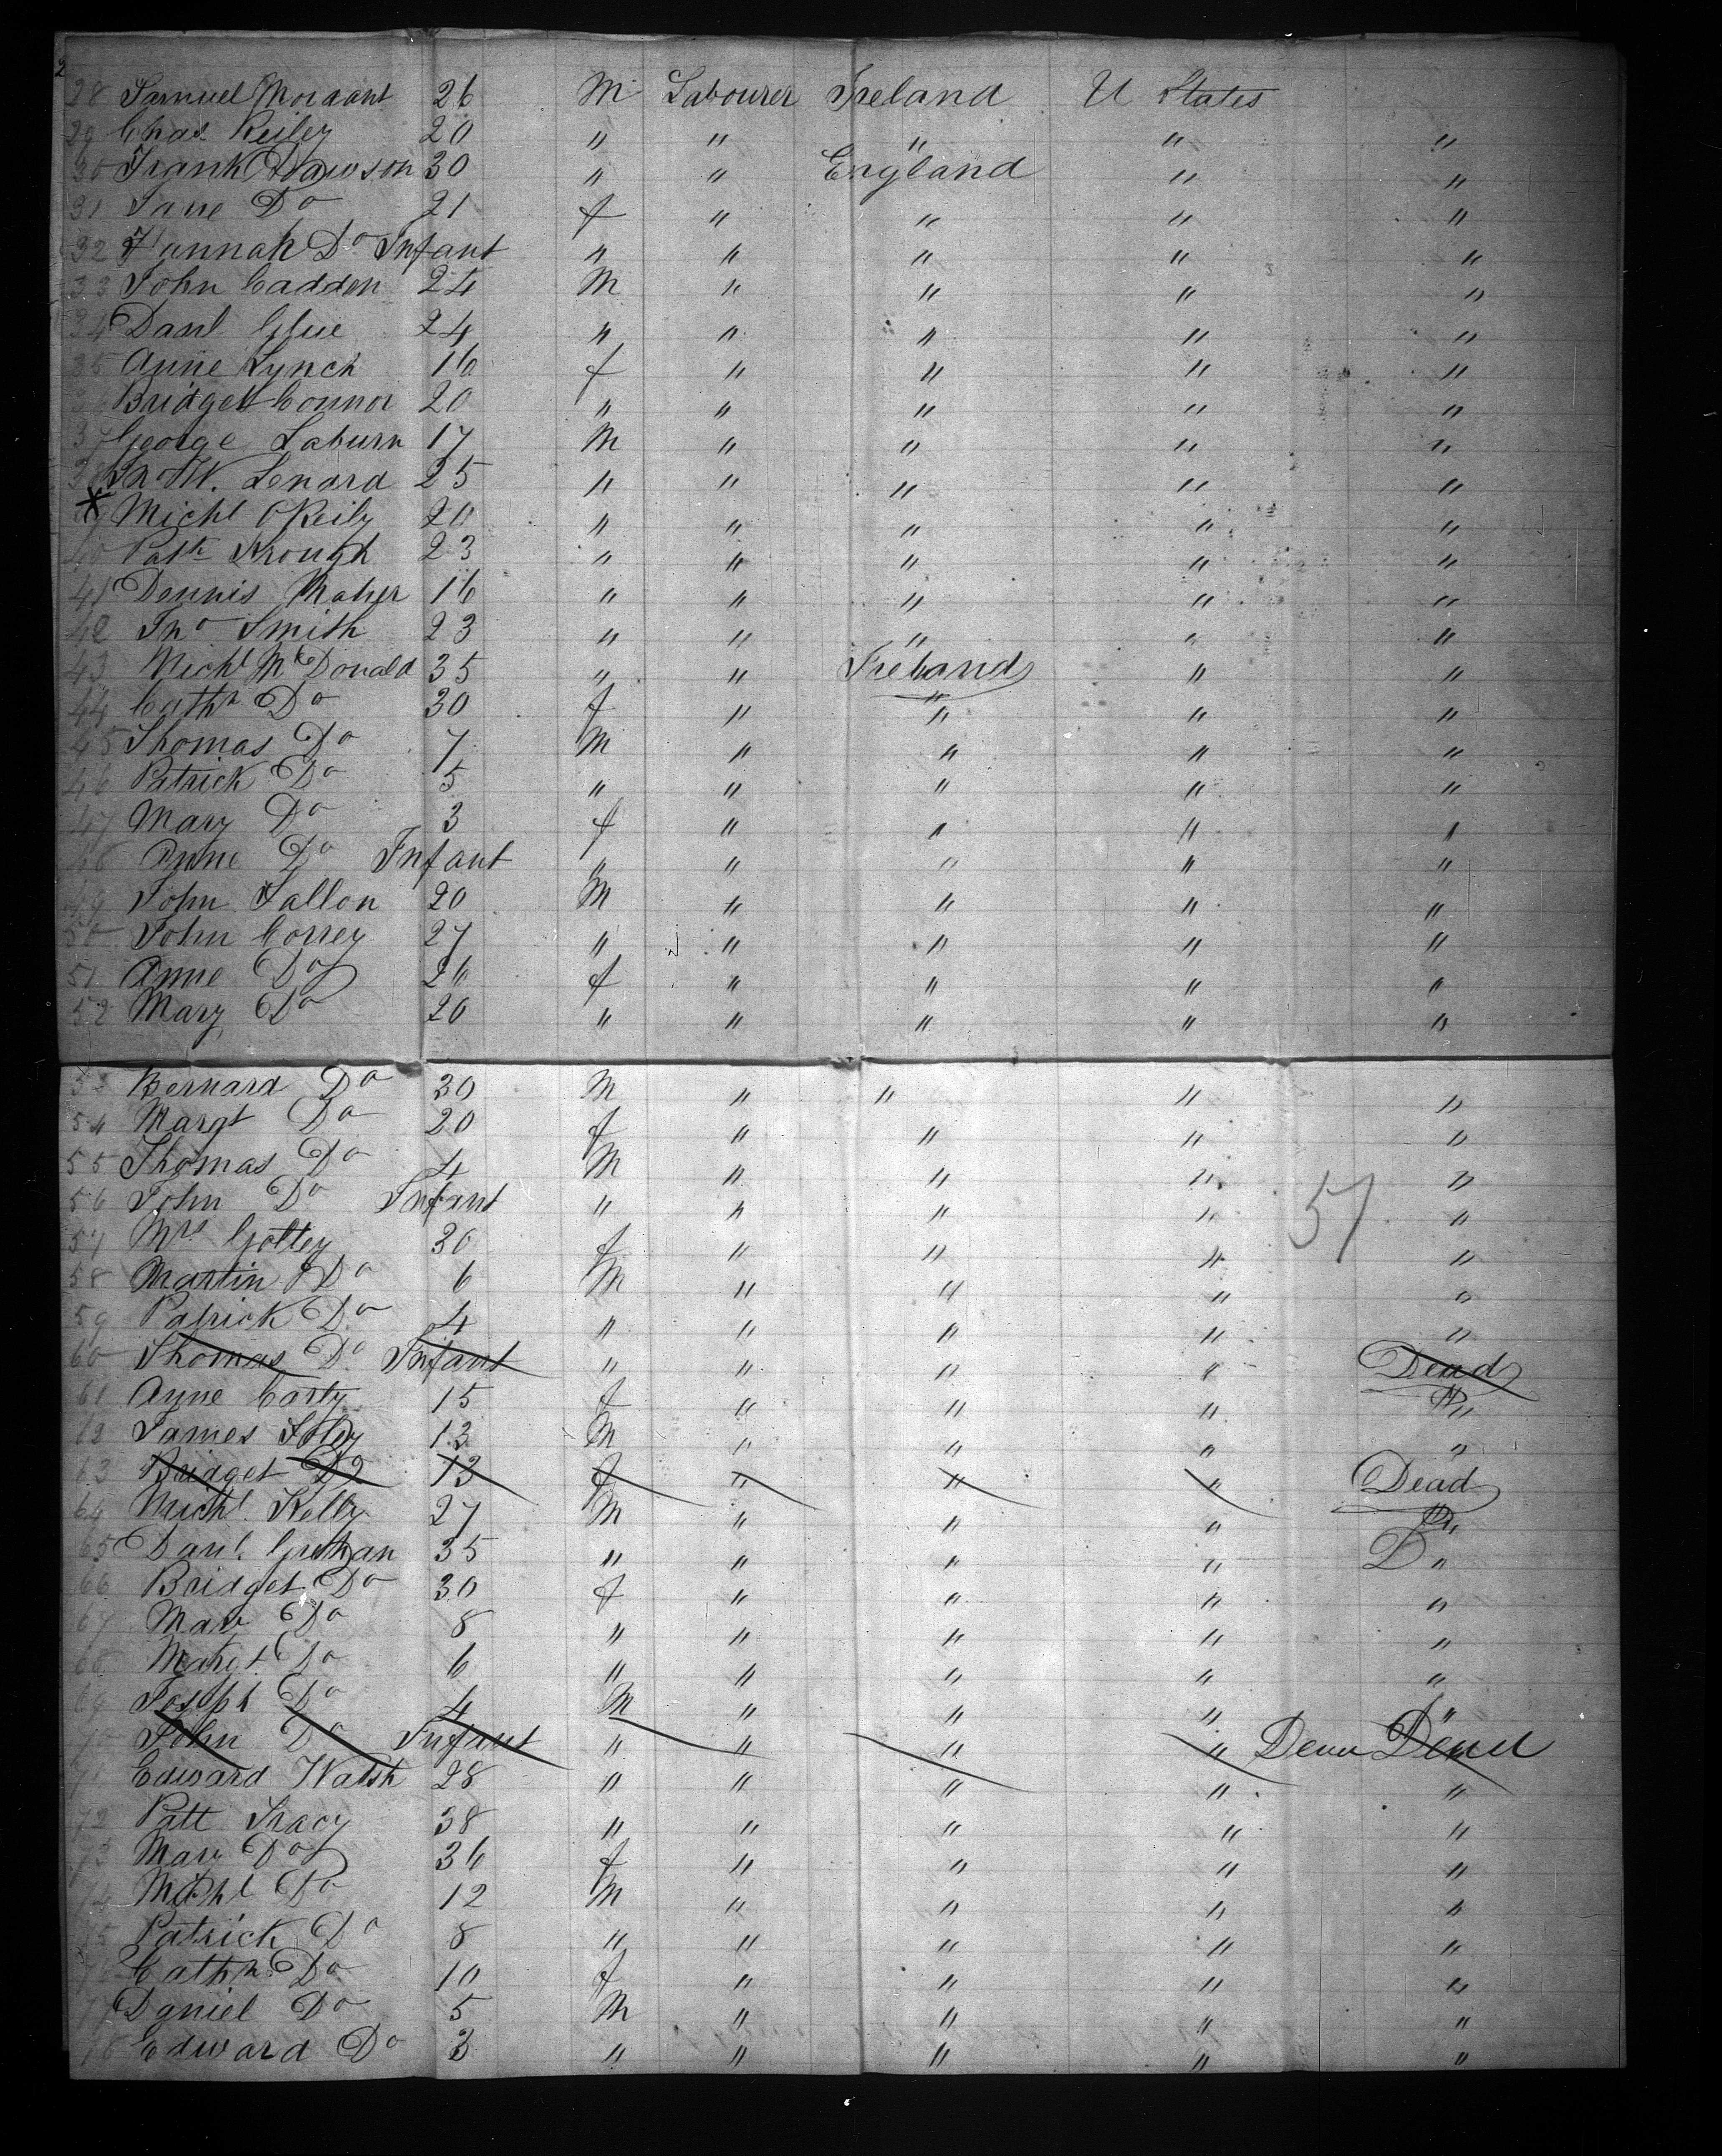 2
28 Samuel Mordant 26 M Labourer Ireland U States
29 Chas Reiley 20 " " " " "
30 Frank Dawson 30 " " England " "
31 Jane Do 21 f " " " "
32 Hannah Do Infant " " " " "
33 John Cadden 24 M " " " "
34 Danl Glue 24 " " " " "
35 Anne Lynch 16 f " " " "
36 Bridget Connor 20 " " " " "
37 George Laburn 17 M " " " "
38 Lenard 25 " " " " "
X 39 Michl OReily 20 " " " " "
40 Patk Krough 23 " " " " "
41 Dennis Maher 16 " " " " "
42 Jno Smith 23 " " " " "
43 Michl McDonald 35 " " Ireland " "
44 Cathn Do 30 f " " " "
45 Thomas Do 7 M " " " "
46 Patrick Do 5 " " " " "
47 Mary Do 3 f " " " "
48 Anne Do Infant " " " " "
49 John Fallon 20 M " " " "
50 John Correy 27 " " " " "
51 Anne Do 26 f " " " "
52 Mary Do 20 " " " " "
53 Bernard Do 30 M " " " "
54 Margt Do 20 f " " " "
55 Thomas Do 4 M " " " "
56 John Do Infant " " " " 51 "
57 Mrs Goltey 30 f " " " "
58 Martin Do 6 M " " " "
59 Patrick Do 4 " " " " "
60 Thomas Do Infant " " " " Dead
61 Anne Carty 15 f " " " "
62 James Foley 13 M " " " "
63 Bridget Do 13 f " " " Dead
64 Michl Kelly 27 M " " " "
65 Danl. Grehan 35 " " " " D "
66 Bridget Do 30 f " " " "
67 Mary Do 8 " " " " "
68 Margt Do 6 " " " " "
69 Joseph Do 4 M " " " "
70 John Do Infant " " " " Dead
71 Edward Walsh 28 " " " " "
72 Patt Tracy 38 " " " " "
73 Mary Do 36 f " " " "
74 Michl Do 12 M " " " "
75 Patrick Do 8 " " " " "
76 Cathn Do 10 f " " " "
77 Daniel Do 5 M " " " "
78 Edward Do 3 " " " " "